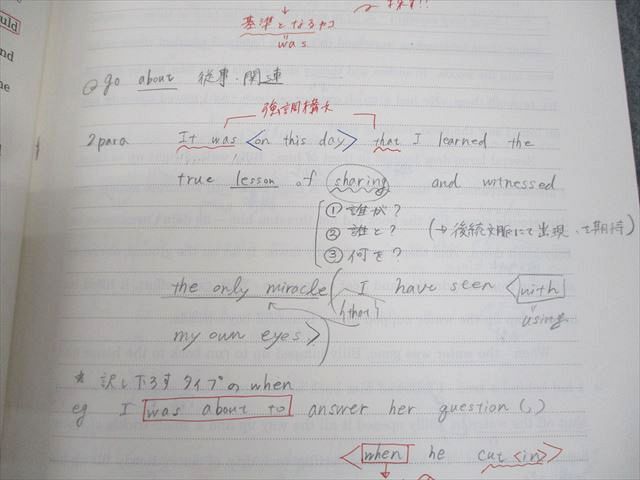 基準となるヤツ
was
go about 従事・関連
強調構文
2para It was <on this day> that I learned the
true lesson of sharing and witnessed
① 誰が?
② 誰と? (→後続文脈にて出現、と期待)
③ 何を?
the only miracle (I have seen <with
{that}
using
my own eyes>)
* 訳し下ろすタイプの when
eg I was about to answer her question (,)
<when he cut <in>>